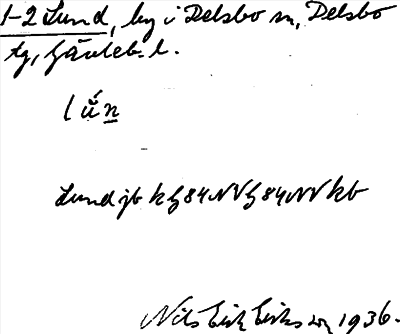 1-2 Lund, by i Delsbo sn, Delsbo
tg, Gävleb. l.
lŭ́n̲
Lund jb k G84NV G84NV kb
Nils Erik Eriksson 1936.